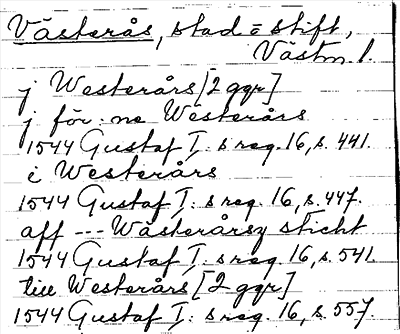 Västerås, stad o stift,
Västm. l.
j Westerårs [2 ggr]
j för:ne Westerårs
1544 Gustaf I:s reg. 16, s. 441.
i Westerårs
1544 Gustaf I:s reg. 16, s. 447.
aff --- Wästerårsz sticht
1544 Gustaf I:s reg. 16, s. 541.
till Westerårs [2 ggr]
1544 Gustaf I:s reg. 16, s. 557.